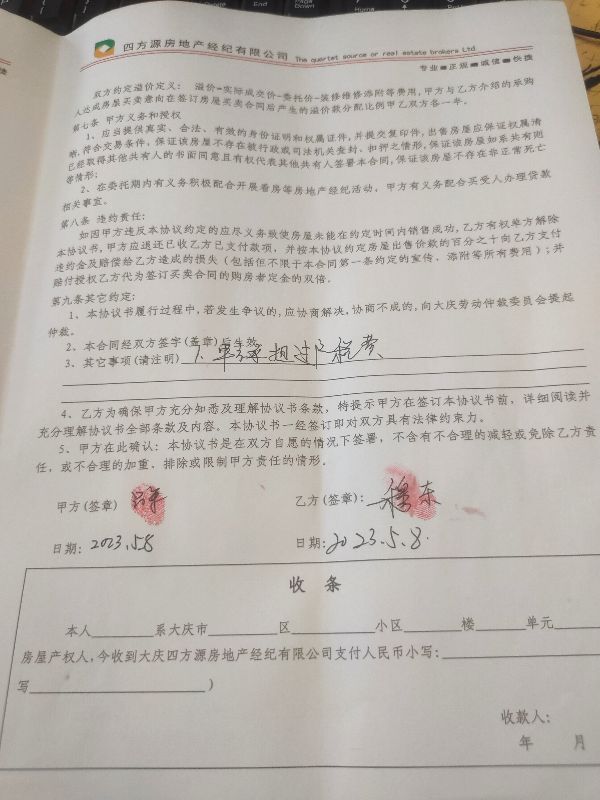 四方源房地产经纪有限公司 The quartet source or real estate brokers Ltd.
专业 正规 诚信 快捷
双方约定溢价定义： 溢价=实际成交价-委托价-装修维修添附等费用，甲方与乙方介绍的承购
人达成房屋买卖意向在签订房屋买卖合同后产生的溢价款分配比例甲乙双方各一半。
第七条 甲方义务和授权
1、应当提供真实、合法、有效的身份证明和权属证件，并提交复印件，出售房屋应保证权属清
晰，符合交易条件，保证该房屋不存在被行政或司法机关查封、扣押之情形，保证该房屋如系共有则
已经取得其他共有人的书面同意且有权代表其他共有人签署本合同，保证该房屋不存在非正常死亡
等情形；
2、在委托期内有义务积极配合开展看房等房地产经纪活动，甲方有义务配合买受人办理贷款
相关事宜。
第八条 违约责任：
如因甲方违反本协议约定的应尽义务致使房屋未能在约定时间内销售成功，乙方有权单方解除
本协议书，甲方应退还已收乙方已支付款项，并按本协议约定房屋出售价款的百分之十向乙方支付
违约金及赔偿给乙方造成的损失（包括但不限于本合同第一条约定的宣传、添附等所有费用）；并
赔付授权乙方代为签订买卖合同的购房者定金的双倍。
第九条其它约定：
1、本协议书履行过程中，若发生争议的，应协商解决，协商不成的，向大庆劳动仲裁委员会提起
仲裁。
2、本合同经双方签字(盖章)后生效
3、其它事项(请注明) 1. 承担过户税费
4、乙方为确保甲方充分知悉及理解协议书条款，特提示甲方在签订本协议书前，详细阅读并
充分理解协议书全部条款及内容。本协议书一经签订即对双方具有法律约束力。
5、甲方在此确认：本协议书是在双方自愿的情况下签署，不含有不合理的减轻或免除乙方责
任，或不合理的加重、排除或限制甲方责任的情形。
甲方(签章) 乙方(签章)：
日期：2023.5.8 日期：2023.5.8.
收 条
本人 系大庆市 区 小区 楼 单元
房屋产权人，今收到大庆四方源房地产经纪有限公司支付人民币小写：
写 )
收款人：
年 月